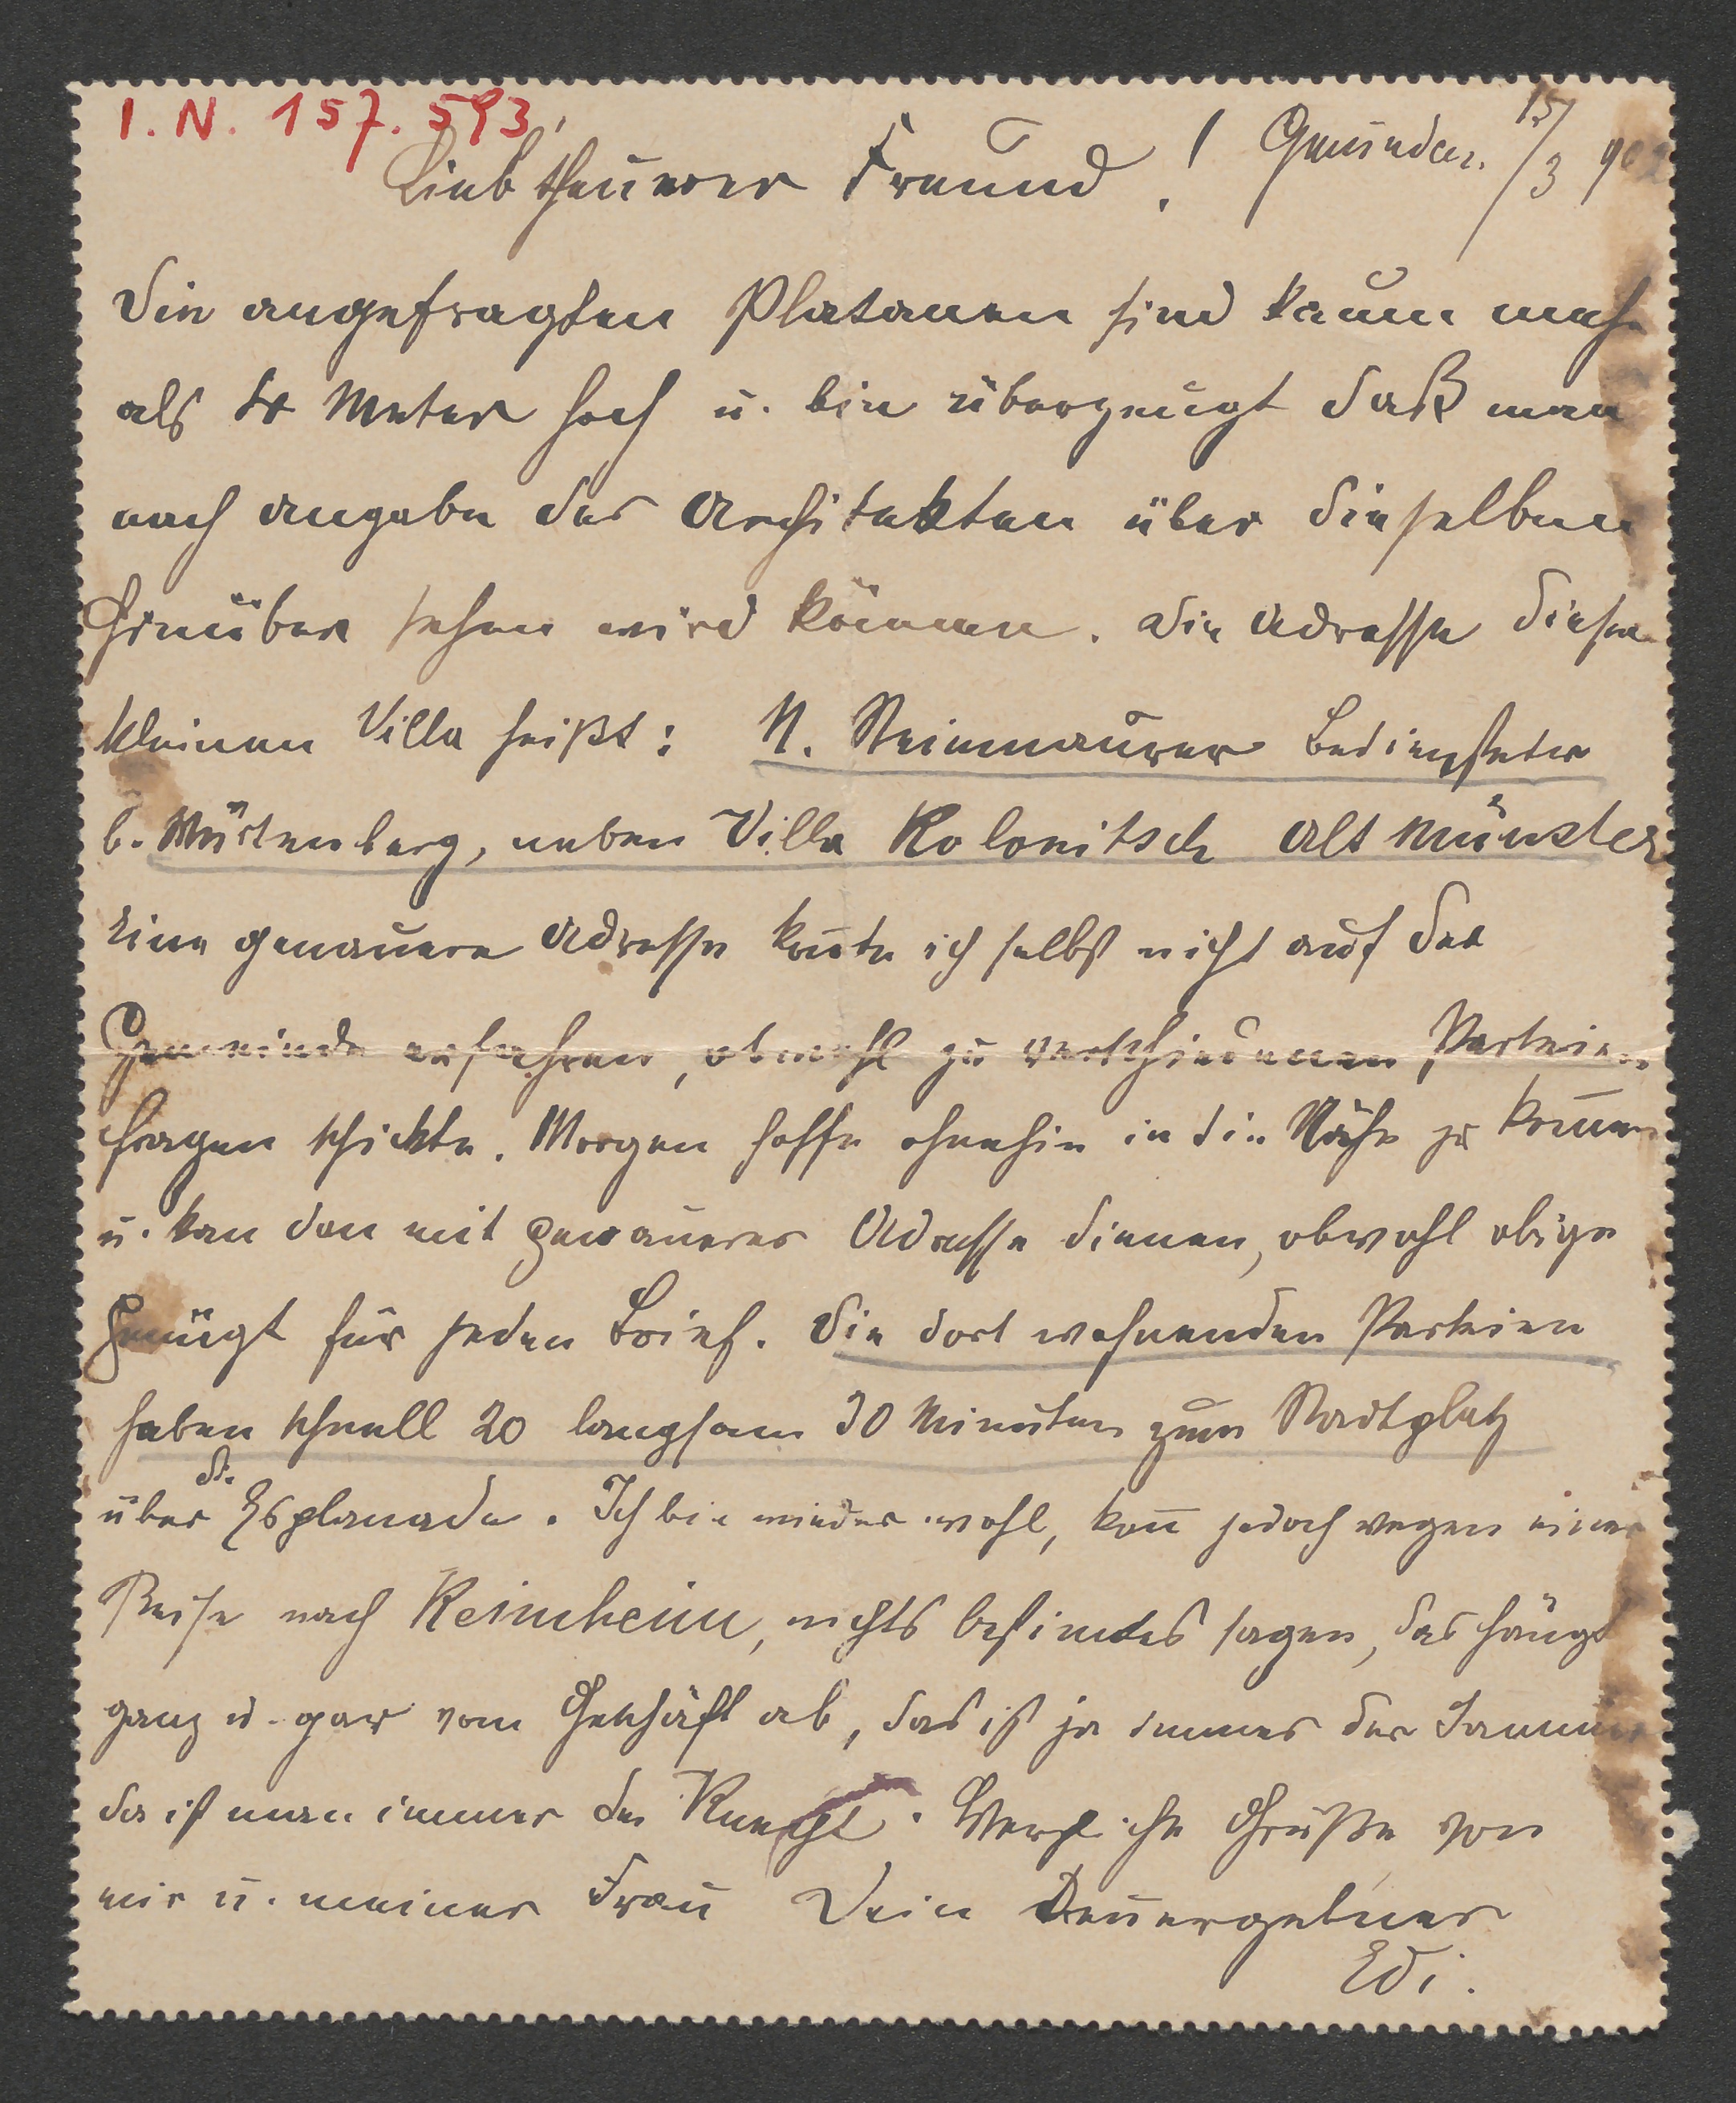 I. N. 157.593
Gmunden. 15/3 902
Liebtheuerer Freund!
Die angefragten Platanen sind kaum mehr
als 4 Meter hoch u. bin überzeugt daß man
nach Angabe des Architekten über dieselben
hinüber sehen wird können. Die Adresse dieser
kleinen Villa heißt: N. Steinmaurer Bediensteter
b. Würtemberg, neben Villa Kolonitsch Altmünster
Eine genauere Adresse konte ich selbst nicht auf der
Gemeinde erfahren, obwohl zu verschiedenen Parteien
fragen schickte. Morgen hoffe ohnehin in die Nähe zu kommen
u. kan dan mit genauerer Adresse dienen, obwohl obige
genügt für jeden Brief. Die dort wohnenden Parteien
haben schnell 20 langsam 30 Minuten zum Stadtplatz
über die Esplanade. Ich bin wieder wohl, kann jedoch wegen einer
Reise nach nichts bestimtes sagen, das hängt
ganz u. gar vom Geschäft ab, das ist ja immer der Jammer
da ist man immer der Knecht. Herzliche Grüße von
mir u. meiner Frau Dein Treuergebner
Edi.